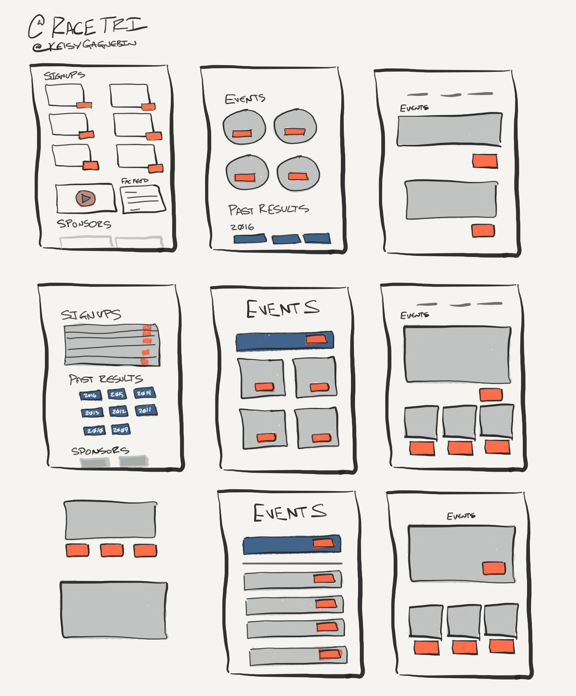 @RACETRI
@KELSYGAGNEBIN
SIGNUPS
SPONSORS
EVENTS
PAST RESULTS
2016
EVENTS
SIGNUPS
PAST RESULTS
2016 2015 2014
2013 2012 2011
2010 2009
SPONSORS
EVENTS
EVENTS
EVENTS
EVENTS